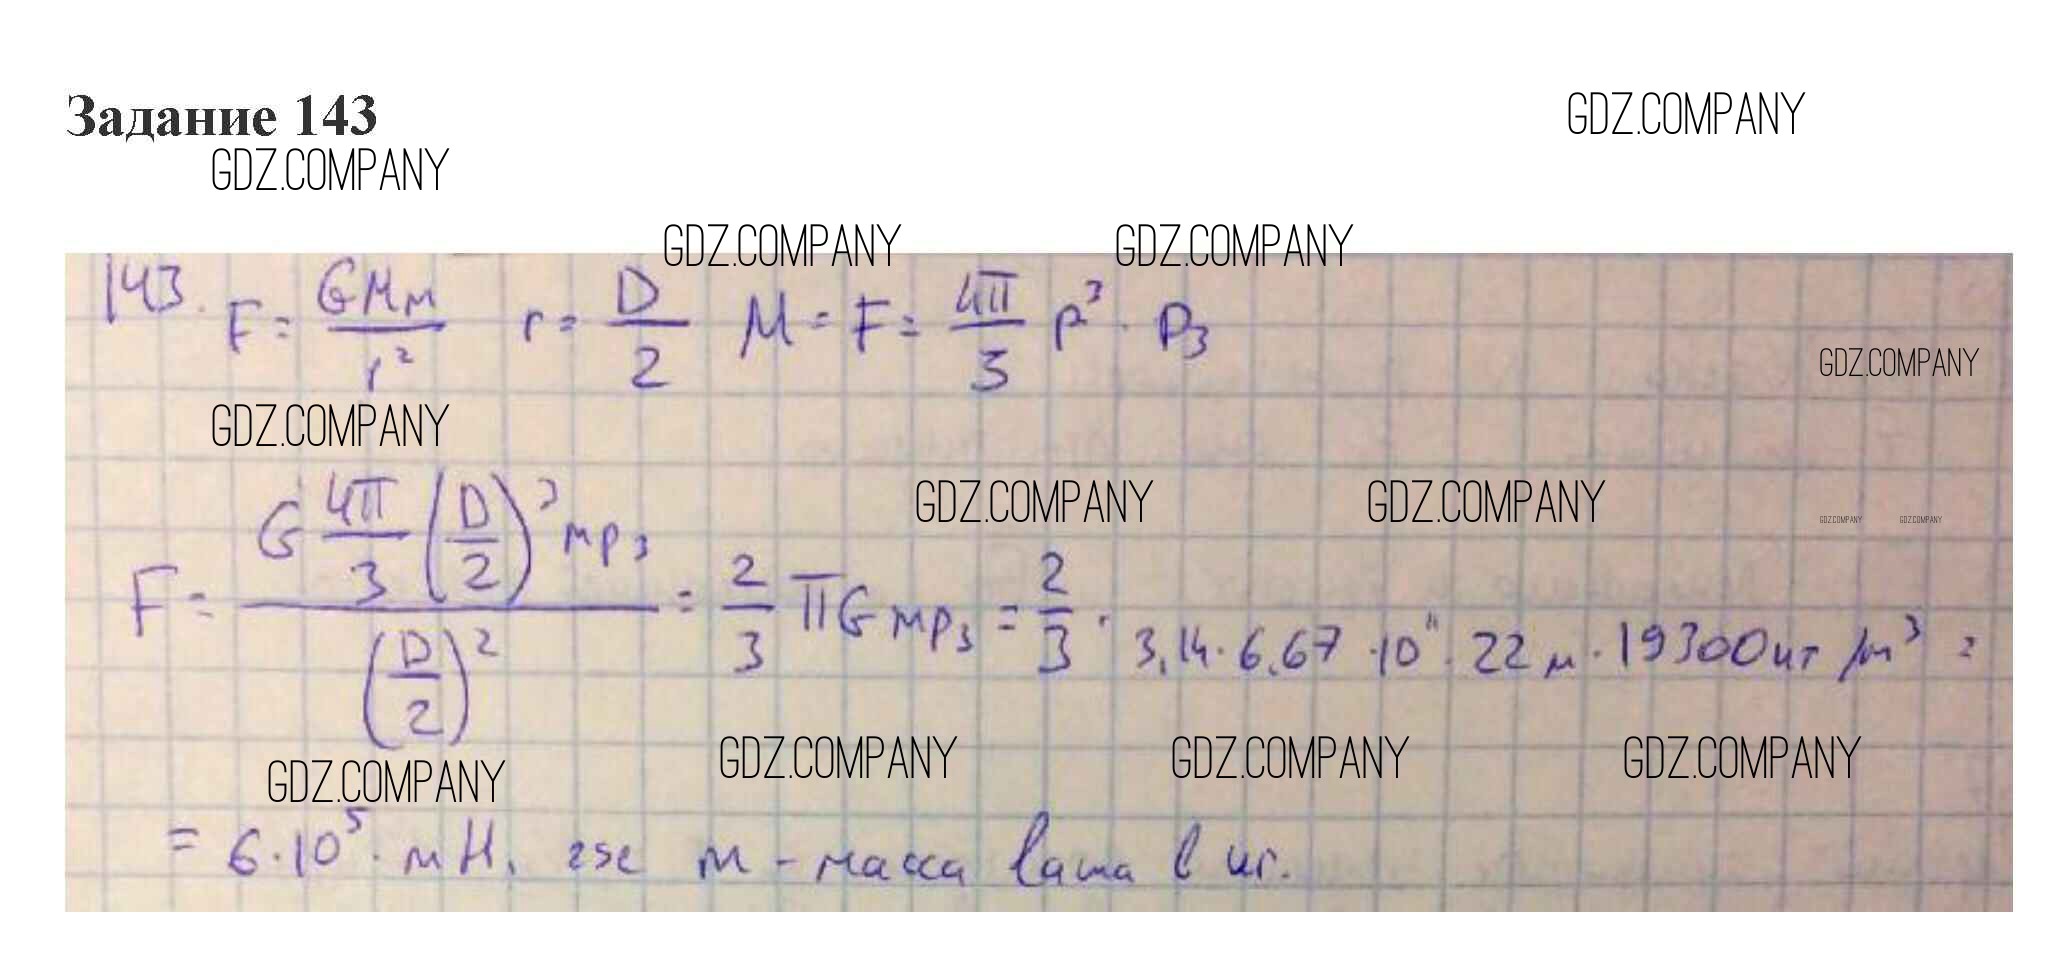 Задание 143
GDZ.COMPANY
GDZ.COMPANY
GDZ.COMPANY GDZ.COMPANY
143. F = GMm / r² r = D / 2 M = F = 4π / 3 р³ · р₃
GDZ.COMPANY
GDZ.COMPANY
GDZ.COMPANY GDZ.COMPANY
GDZ.COMPANY GDZ.COMPANY
F = G 4π/3 (D/2)³ mp₃ / (D/2)² = 2/3 πG mp₃ = 2/3 · 3,14 · 6,67 · 10¹¹ · 22 м · 19300 кг/м³ =
GDZ.COMPANY GDZ.COMPANY GDZ.COMPANY
GDZ.COMPANY
= 6 · 10⁵ · mН, где m - масса ваша в кг.